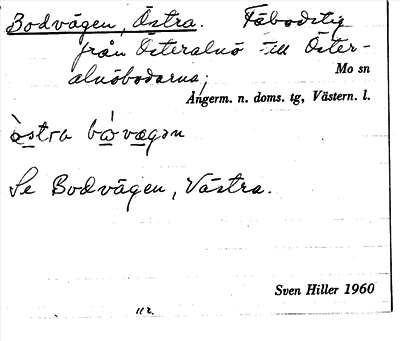 Bodvägen, Östra. Fäbodstig
från Österalnö till Öster-
alnöbodarna;
Mo sn
Ångerm. n. doms. tg, Västern. l.
östra bòvægən
Se Bodvägen, Västra.
Sven Hiller 1960